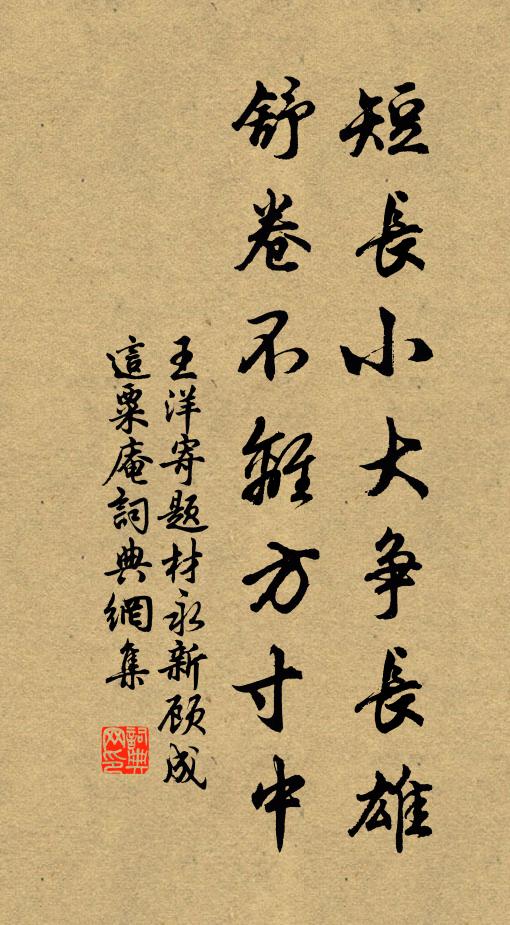 短長小大争長雄
舒卷不離方寸中
王洋寄题材永新顾成
這粟庵詞典網集
詞典网印